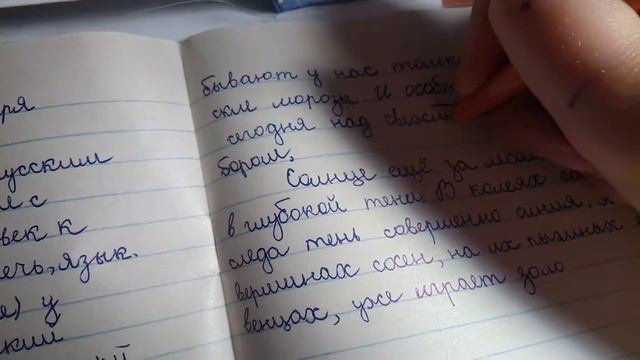 ря
усским
е с
век к
ечь, язык.
е) у
ский
бывают у нас
ские морозы и
сегодня над
бором,
Солнце ещё за
в глубокой тени. В колеях
следа тень совершенно синяя,
вершинах сосен, на их пышных
венцах, уже играет золо